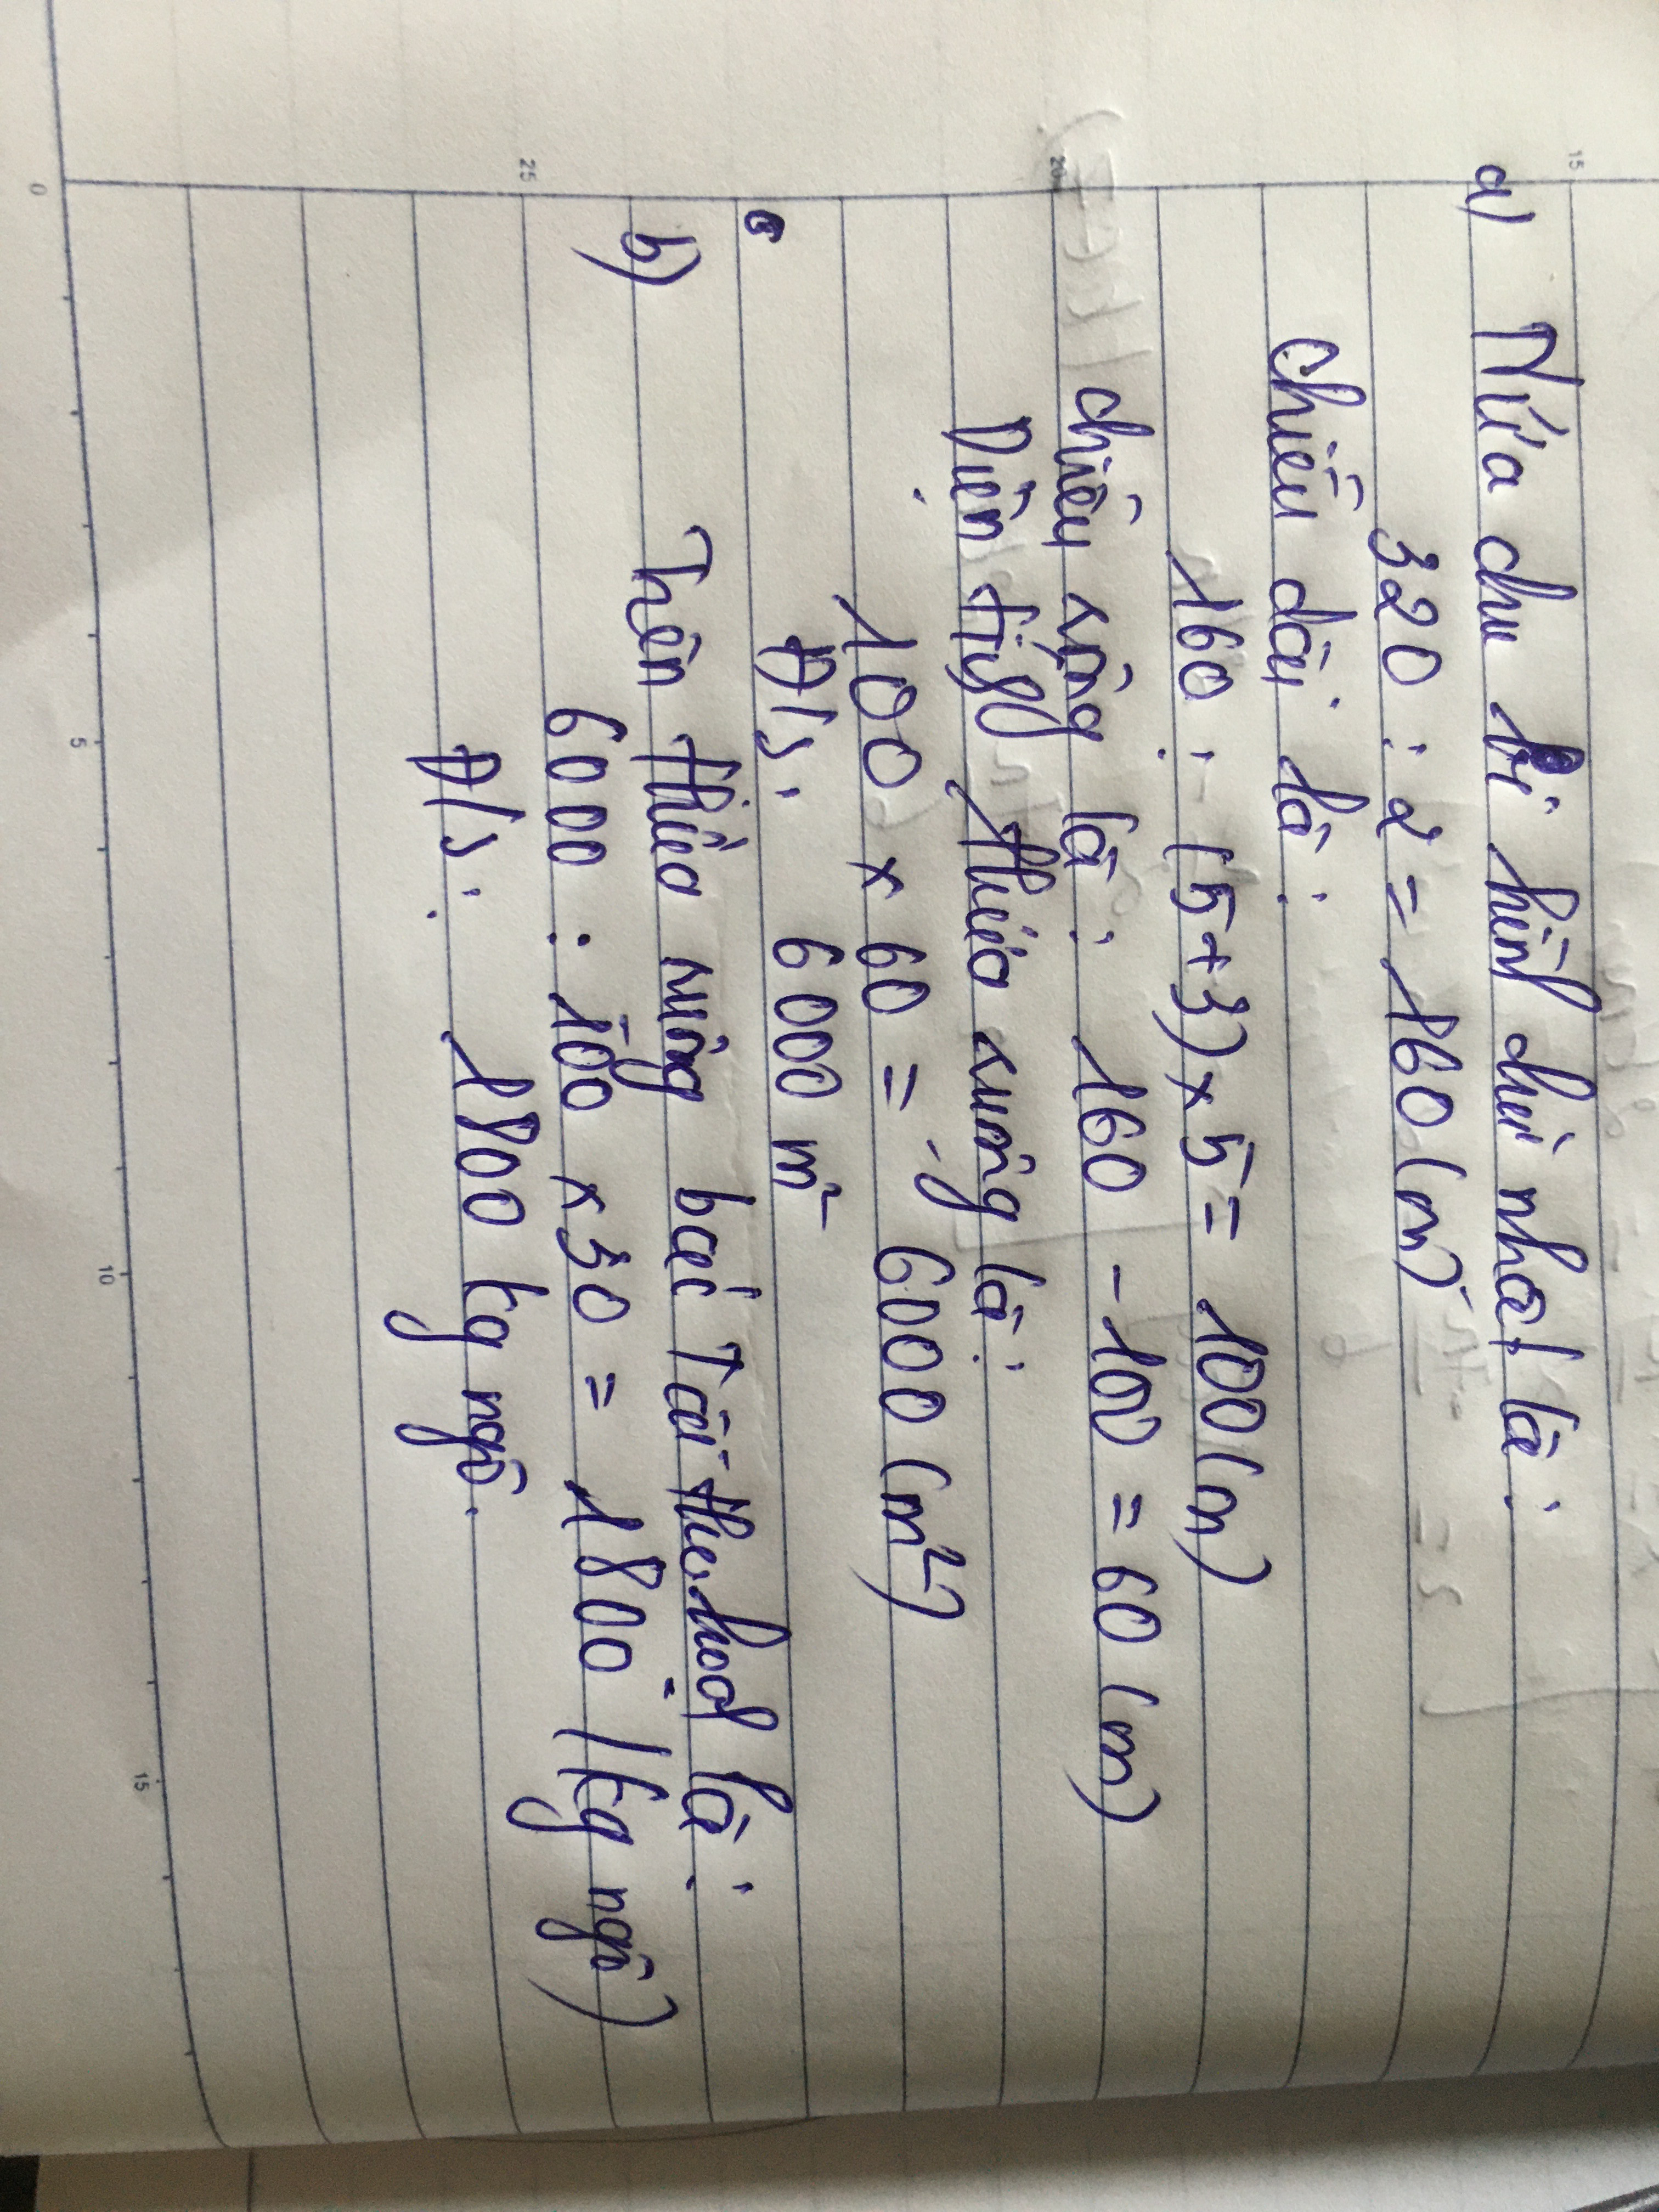 a) Nửa chu vi hình chữ nhật là:
320 : 2 = 160 (m)
chiều dài là:
160 : (5+3) x 5 = 100 (m)
chiều rộng là: 160 - 100 = 60 (m)
Diện tích thửa ruộng là:
100 x 60 = 6000 (m²)
Đ/s: 6000 m²
b) Trên thửa ruộng bác Tài thu hoạch là:
6000 : 100 x 30 = 1800 (kg ngô)
Đ/s: 1800 kg ngô.
15
20
25
0
5
10
15